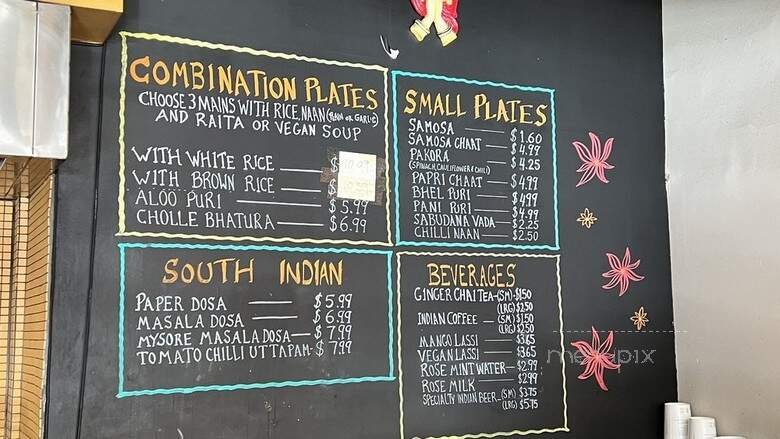 COMBINATION PLATES
CHOOSE 3 MAINS WITH RICE, NAAN (PLAIN OR GARLIC)
AND RAITA OR VEGAN SOUP
WITH WHITE RICE $
WITH BROWN RICE $
ALOO PURI $5.99
CHOLLE BHATURA $6.99
SMALL PLATES
SAMOSA $1.60
SAMOSA CHAAT $4.99
PAKORA $4.25
(SPINACH, CAULIFLOWER & CHILI)
PAPRI CHAAT $4.99
BHEL PURI $4.99
PANI PURI $4.99
SABUDANA VADA $2.25
CHILLI NAAN $2.50
SOUTH INDIAN
PAPER DOSA $5.99
MASALA DOSA $6.99
MYSORE MASALA DOSA $7.99
TOMATO CHILLI UTTAPAM $7.99
BEVERAGES
GINGER CHAI TEA-(SM)-$1.50
(LRG) $2.50
INDIAN COFFEE-(SM) $1.50
(LRG) $2.50
MANGO LASSI $3.65
VEGAN LASSI $3.65
ROSE MINT WATER $2.99
ROSE MILK $2.99
SPECIALTY INDIAN BEER-(SM) $3.75
(LRG) $5.75
menupix